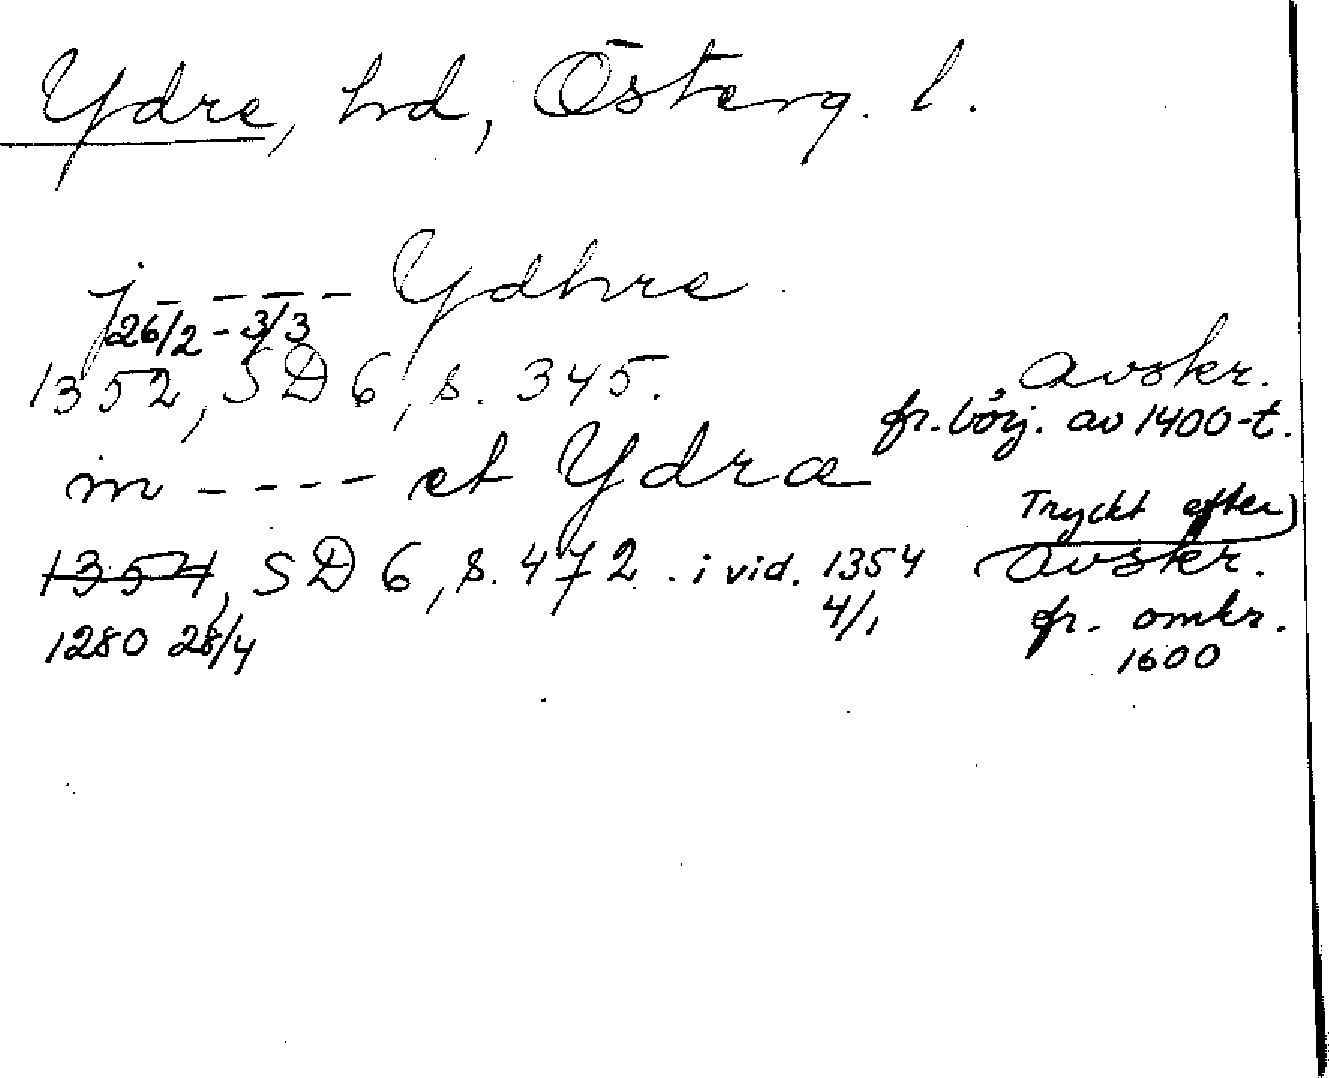 Ydre, hd, Österg. l.
j - - - - Ydhre
26/2 - 3/3
1352, SD 6, s. 345. avskr.
fr. börj. av 1400-t.
in - - - - et Ydra
Tryckt efter
1354, SD 6, s. 472. i vid. 1354 avskr.
1280 28/4 4/1 fr. omkr.
1600